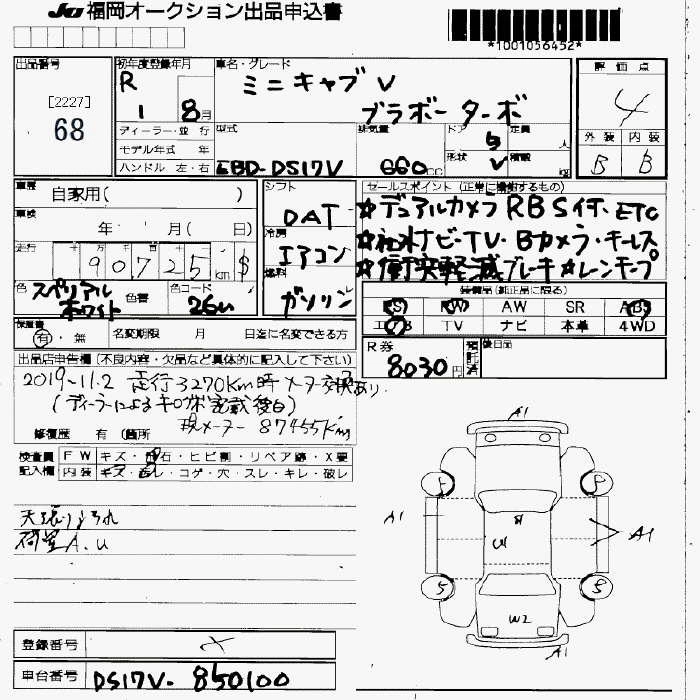 JU 福岡オークション出品申込書
*1001056452*
出品番号 初年度登録年月 車名・グレード 評価点
[2227] R ミニキャブV 4
68 1 8月 ブラボーターボ
ディーラー・並行 型式 排気量 ドア 5 定員 人 外装 内装
モデル年式 年 形状 V 積載 kg B B
ハンドル 左・右 EBD-DS17V 660cc
車歴 自家用( ) シフト DAT セールスポイント (正常に機能するもの)
車検 年 月( 日) 冷房 エアコン ☆デュアルカメラ RBS付・ETC
走行 十 万 千 百 十 一 ☆社外ナビ・TV・Bカメラ・キーレス
90,725km $ 燃料 ガソリン ☆衝突軽減ブレーキ☆レンキープ
色 スペリアルホワイト 色替 色コード 26U 装備品(純正品に限る)
PS PW AW SR ABS
エアB TV ナビ 本革 4WD
保証書 有・無 名変期限 月 日迄に名変できる方
R券 8030円 預託済 後日品
出品店申告欄(不良内容・欠品など具体的に記入して下さい)
2019-11.2 走行3270Km時メーター交換あり
(ディーラーによるキロサポ記載後日)
現メーター 87455Km
修復歴 有 (箇所
検査員 FW キズ・飛石・ヒビ割・リペア跡・X要
記入欄 内装 キズ・汚レ・コゲ・穴・スレ・キレ・破レ
A1
5 5
A1 A1
U1
5 5
W2
A1
荷室A.U
登録番号
車台番号 DS17V-850100